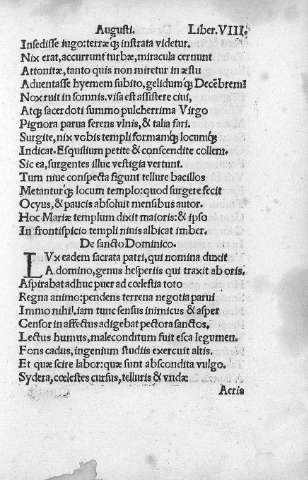 Augusti. Liber. VIII.
Insedisse iugo: terræq; instrata videtur.
Nix erat, accurrunt turbæ, miracula cernunt
Attonitæ, tanto quis non miretur in æstu
Aduentasse hyemem subito, gelidumq; Decēbrem?
Nox ruit in somnis. visa est assistere ciui,
Atq; sacerdoti summo pulcherrima Virgo
Pignora parua ferens vlnis, & talia fari.
Surgite, nix vobis templi formamq; locumq;
Indicat. Esquilium petite & conscendite collem.
Sic ea, surgentes illuc vestigia vertunt.
Tum niue conspecta figunt tellure bacillos
Metanturq; locum templo: quod surgere fecit
Ocyus, & paucis absoluit mensibus autor.
Hoc Mariæ templum dixit maioris: & ipso
In frontispicio templi niuis albicat imber.
De sancto Dominico.
LVx eadem sacrata patri, qui nomina duxit
A domino, genus hesperiis qui traxit ab oris.
Aspirabat adhuc puer ad cœlestia toto
Regna animo: pendens terrena negotia parui
Immo nihil. iam tunc sensus inimicus & asper
Censor in affectus adigebat pectora sanctos.
Lectus humus, male conditum fuit esca legumen.
Fons cadus, ingenium studiis exercuit altis.
Et quæ scire labor: quæ sunt abscondita vulgo.
Sydera, cœlestes cursus, telluris & vndæ
Aeris